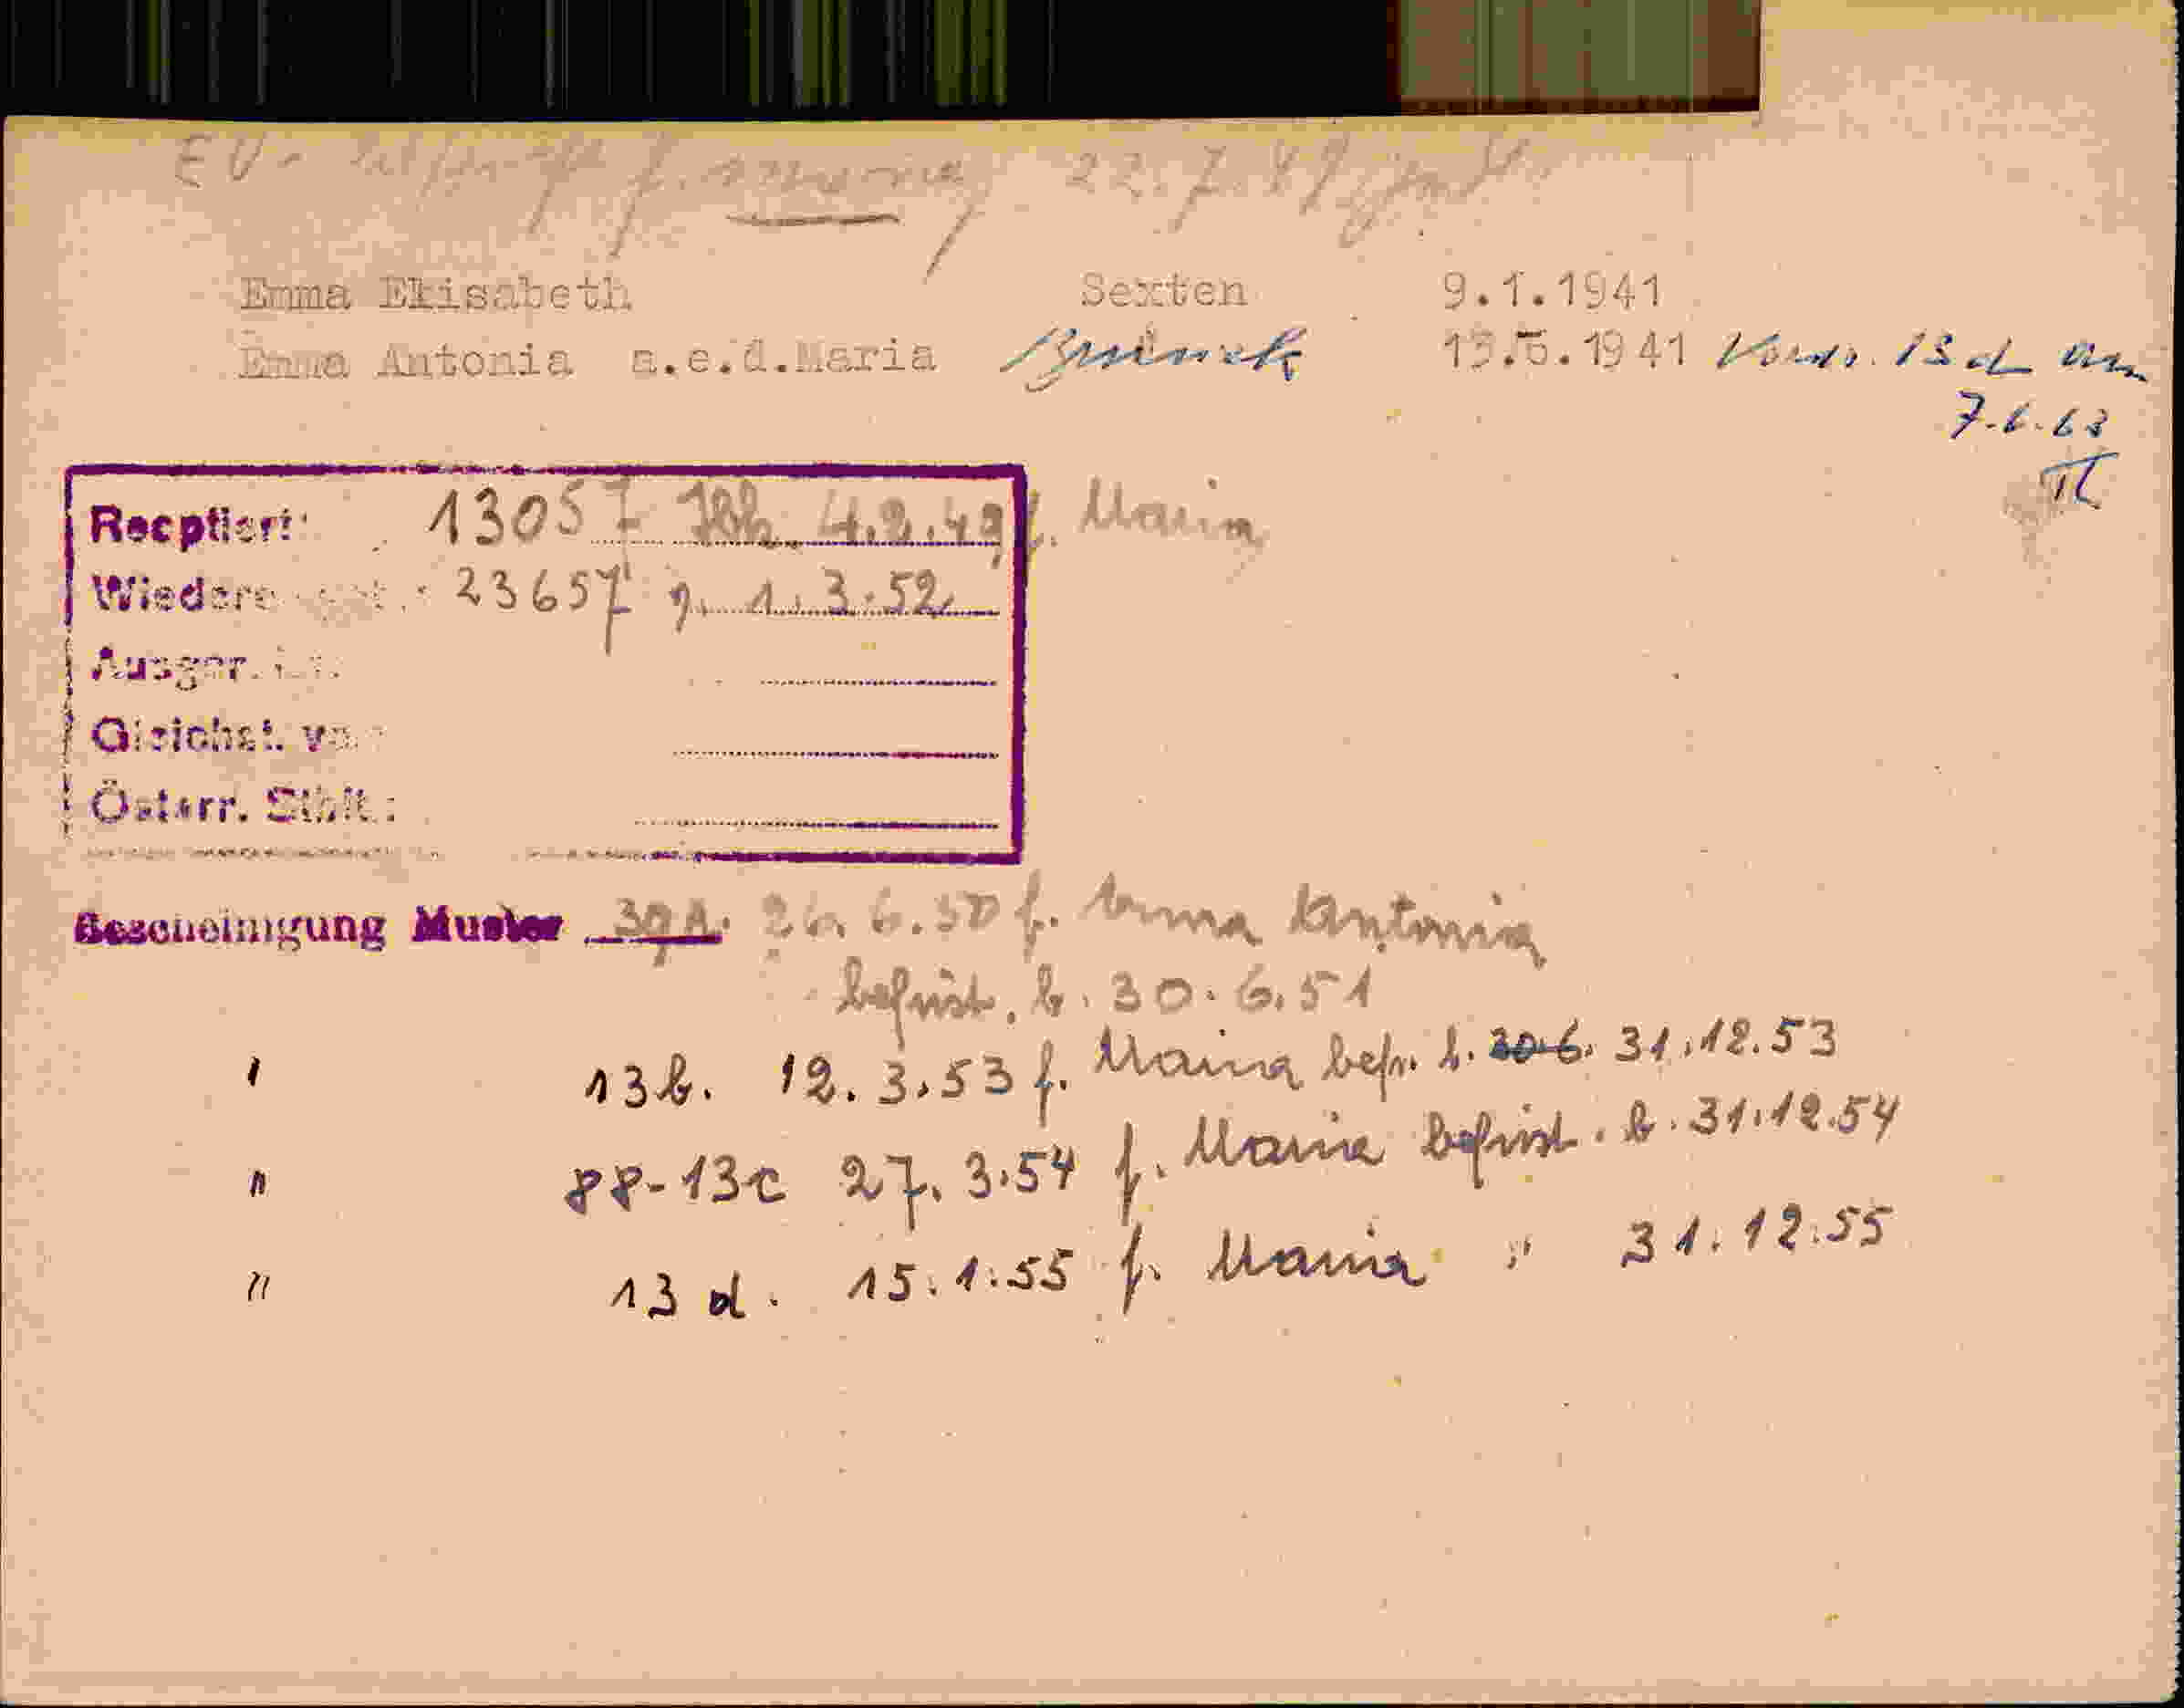 EV- f. 22.7.49
Emma Ekisabeth Sexten 9.1.1941
Emma Antonia a.e.d.Maria Bruneck 13.5.1941 13 d am
7.6.63
Recptiert: 13057 4.2.49 f. Maria
23657 1.3.52
Gleichst. v
Österr. Stblt.:
Bescheinigung Muster 39A. 26.6.50 f. Emma Antonia
befrist. b. 30.6.51
" 13b. 12.3.53 f. Maria befr. b. 30.6. 31.12.53
" 88-13c 27.3.54 f. Maria befrist. b. 31.12.54
" 13 d. 15.1.55 f. Maria " 31.12.55